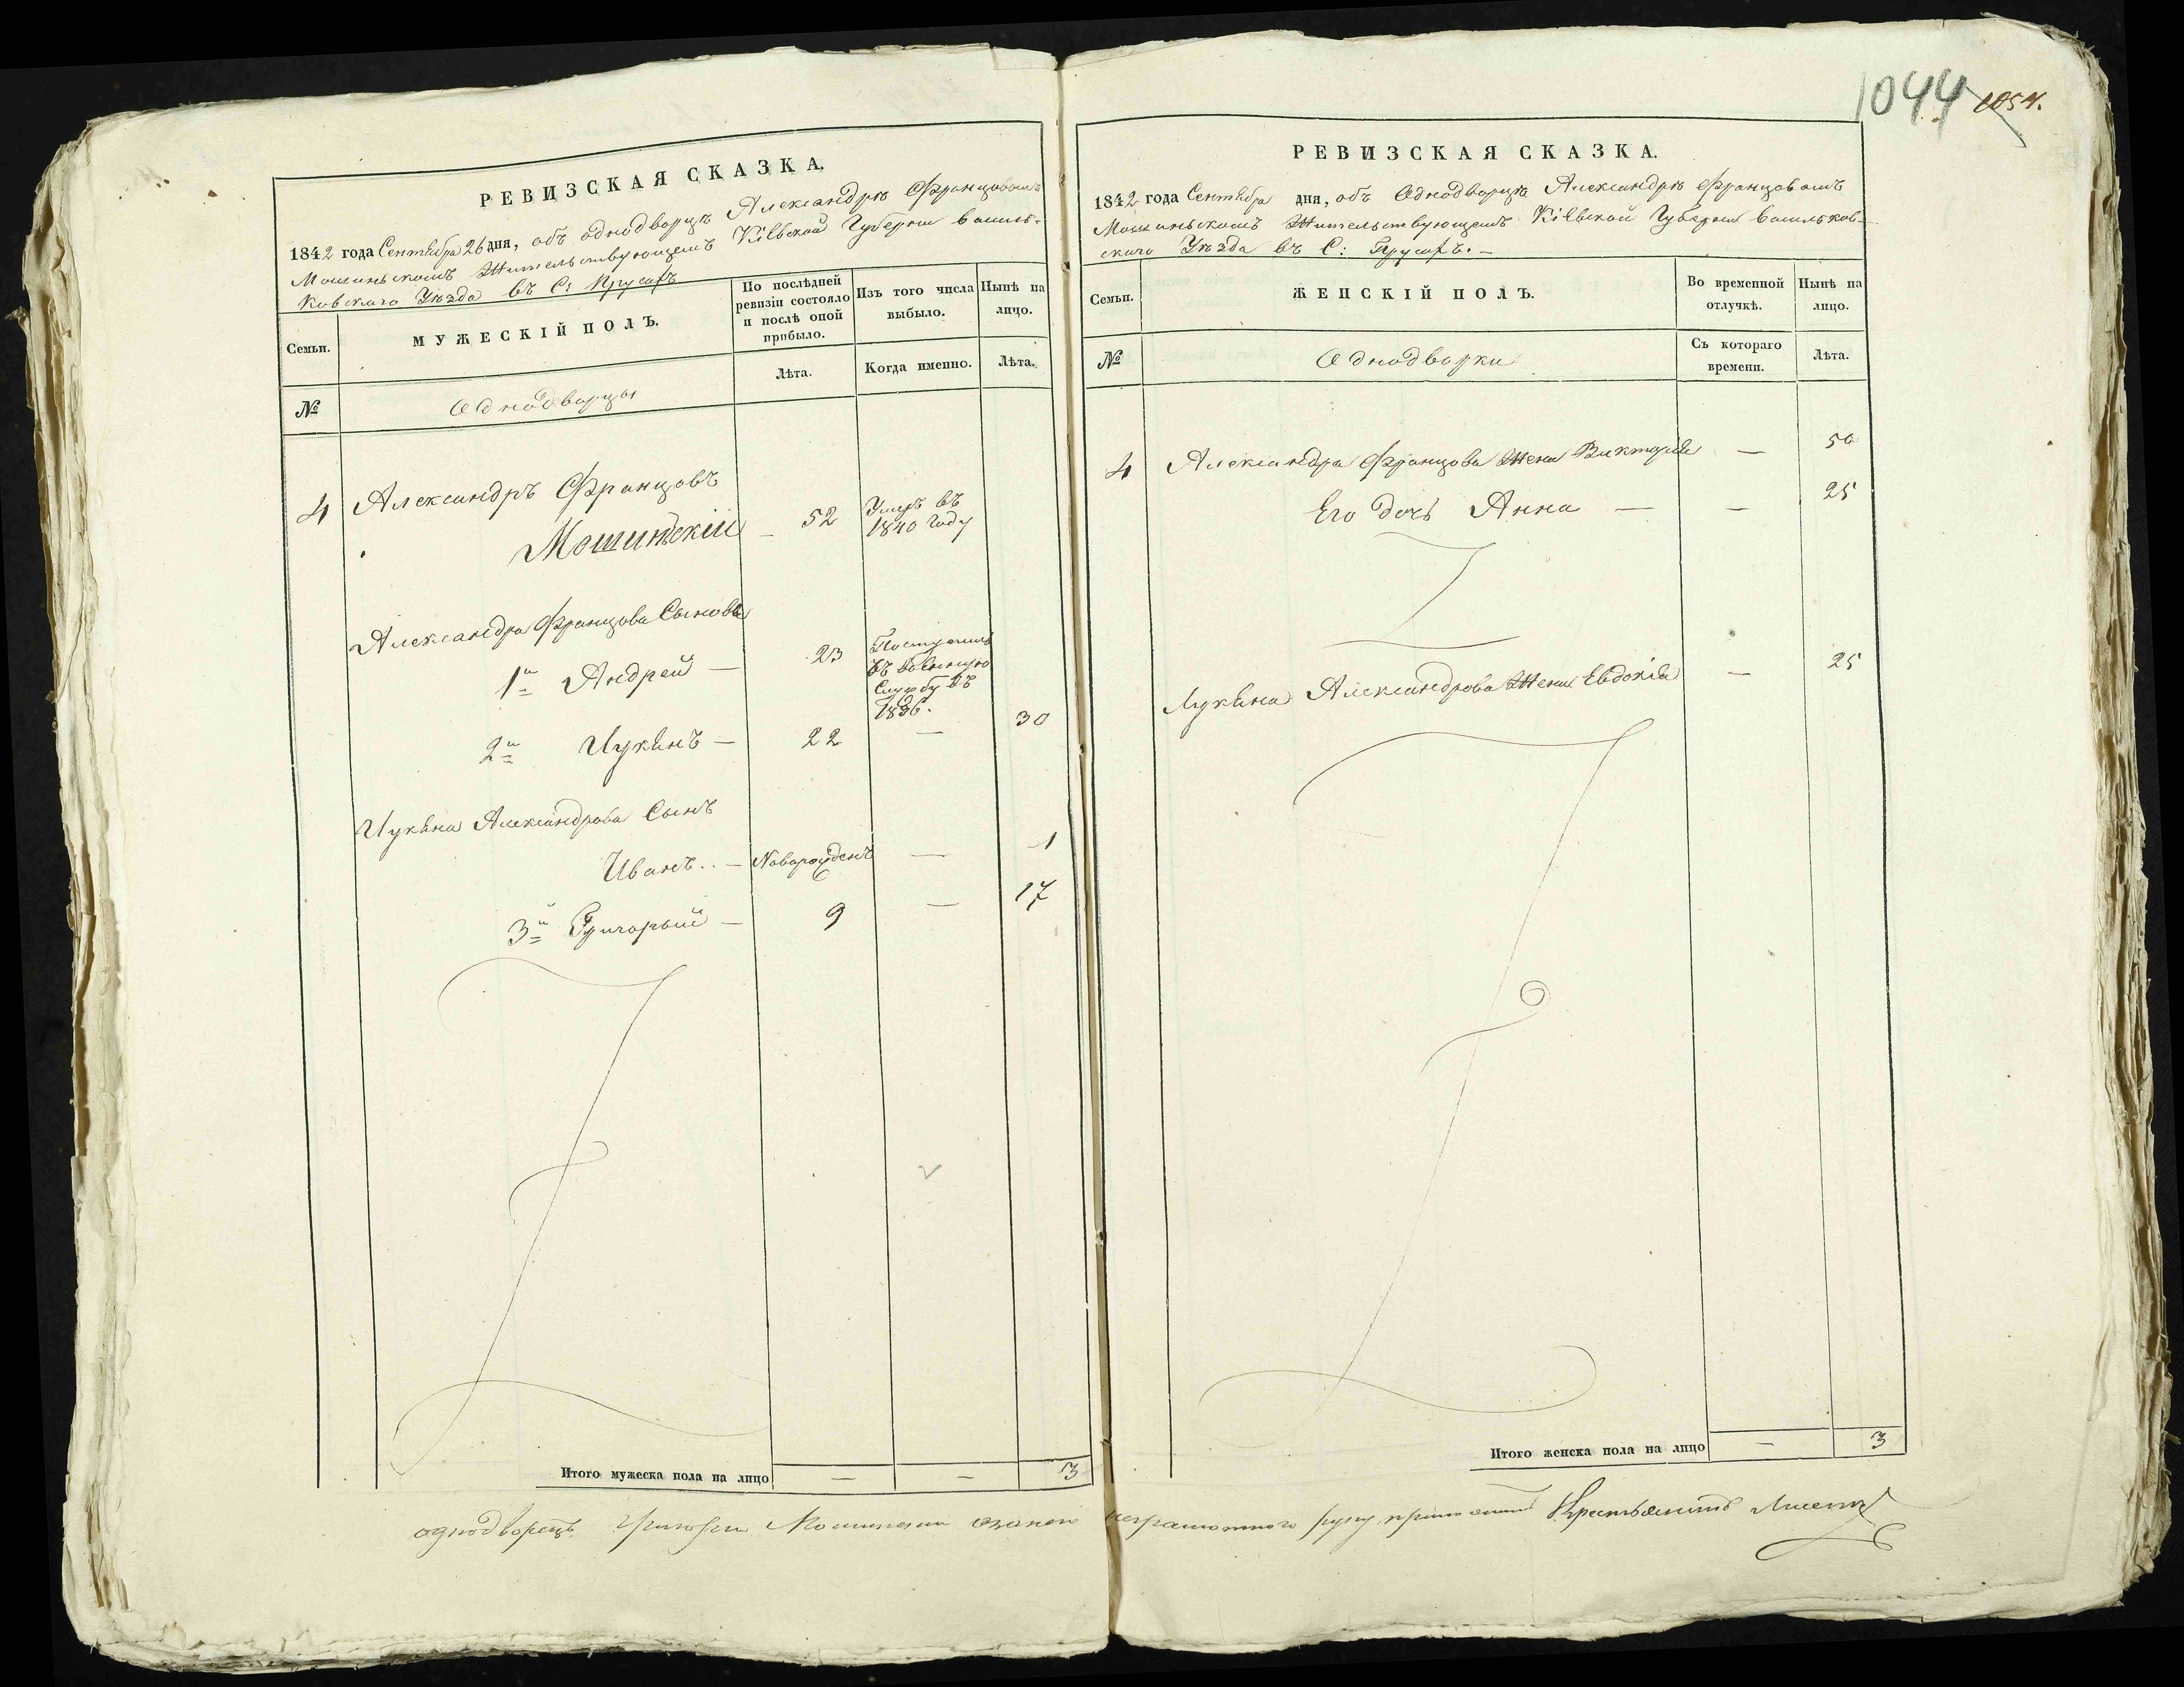 1044 1054.
РЕВИЗСКАЯ СКАЗКА.
1842 года Сентября 26 дня, объ однодворцѣ Александрѣ Францовомъ
Мошиньскомъ Жительствующемъ Кіевской Губерніи Василь-
ковскаго Уѣзда въ С:
Семьи.
МУЖЕСКІЙ ПОЛЪ.
По послѣдней
ревизіи состояло
и послѣ оной
прибыло.
Изъ того числа
выбыло.
Нынѣ на
лицо.
Лѣта.
Когда именно.
Лѣта.
№
Однодворцы
4 Александръ Францовъ
Мошинскій — 52 Умеръ въ
1840 году
Александра Францова Сыновья
1й Андрей — 23 Поступилъ
въ военную
Службу въ
1836.
2й Лукьянъ — 22 — 30
Лукьяна Александрова Сынъ
Иванъ — Новорожденъ — 1
3й Григорій — 9 — 17
Итого мужеска пола на лицо — — 3
РЕВИЗСКАЯ СКАЗКА.
1842 года Сентября дня, объ Однодворцѣ Александрѣ Францовомъ
Мошиньскомъ Жительствующемъ Кіевской Губерніи Васильков-
скаго Уѣзда въ С:
Семьи.
ЖЕНСКІЙ ПОЛЪ.
Во временной
отлучкѣ.
Нынѣ на
лицо.
№
Однодворки
Съ котораго
времени.
Лѣта.
4 Александра Францова Жена Викторія — 50
Его дочь Анна — — 25
Лукьяна Александрова Жена Евдокія — 25
Итого женска пола на лицо — 3
однодворецъ Григорій неграмотного руку приложилъ Крестьянинъ